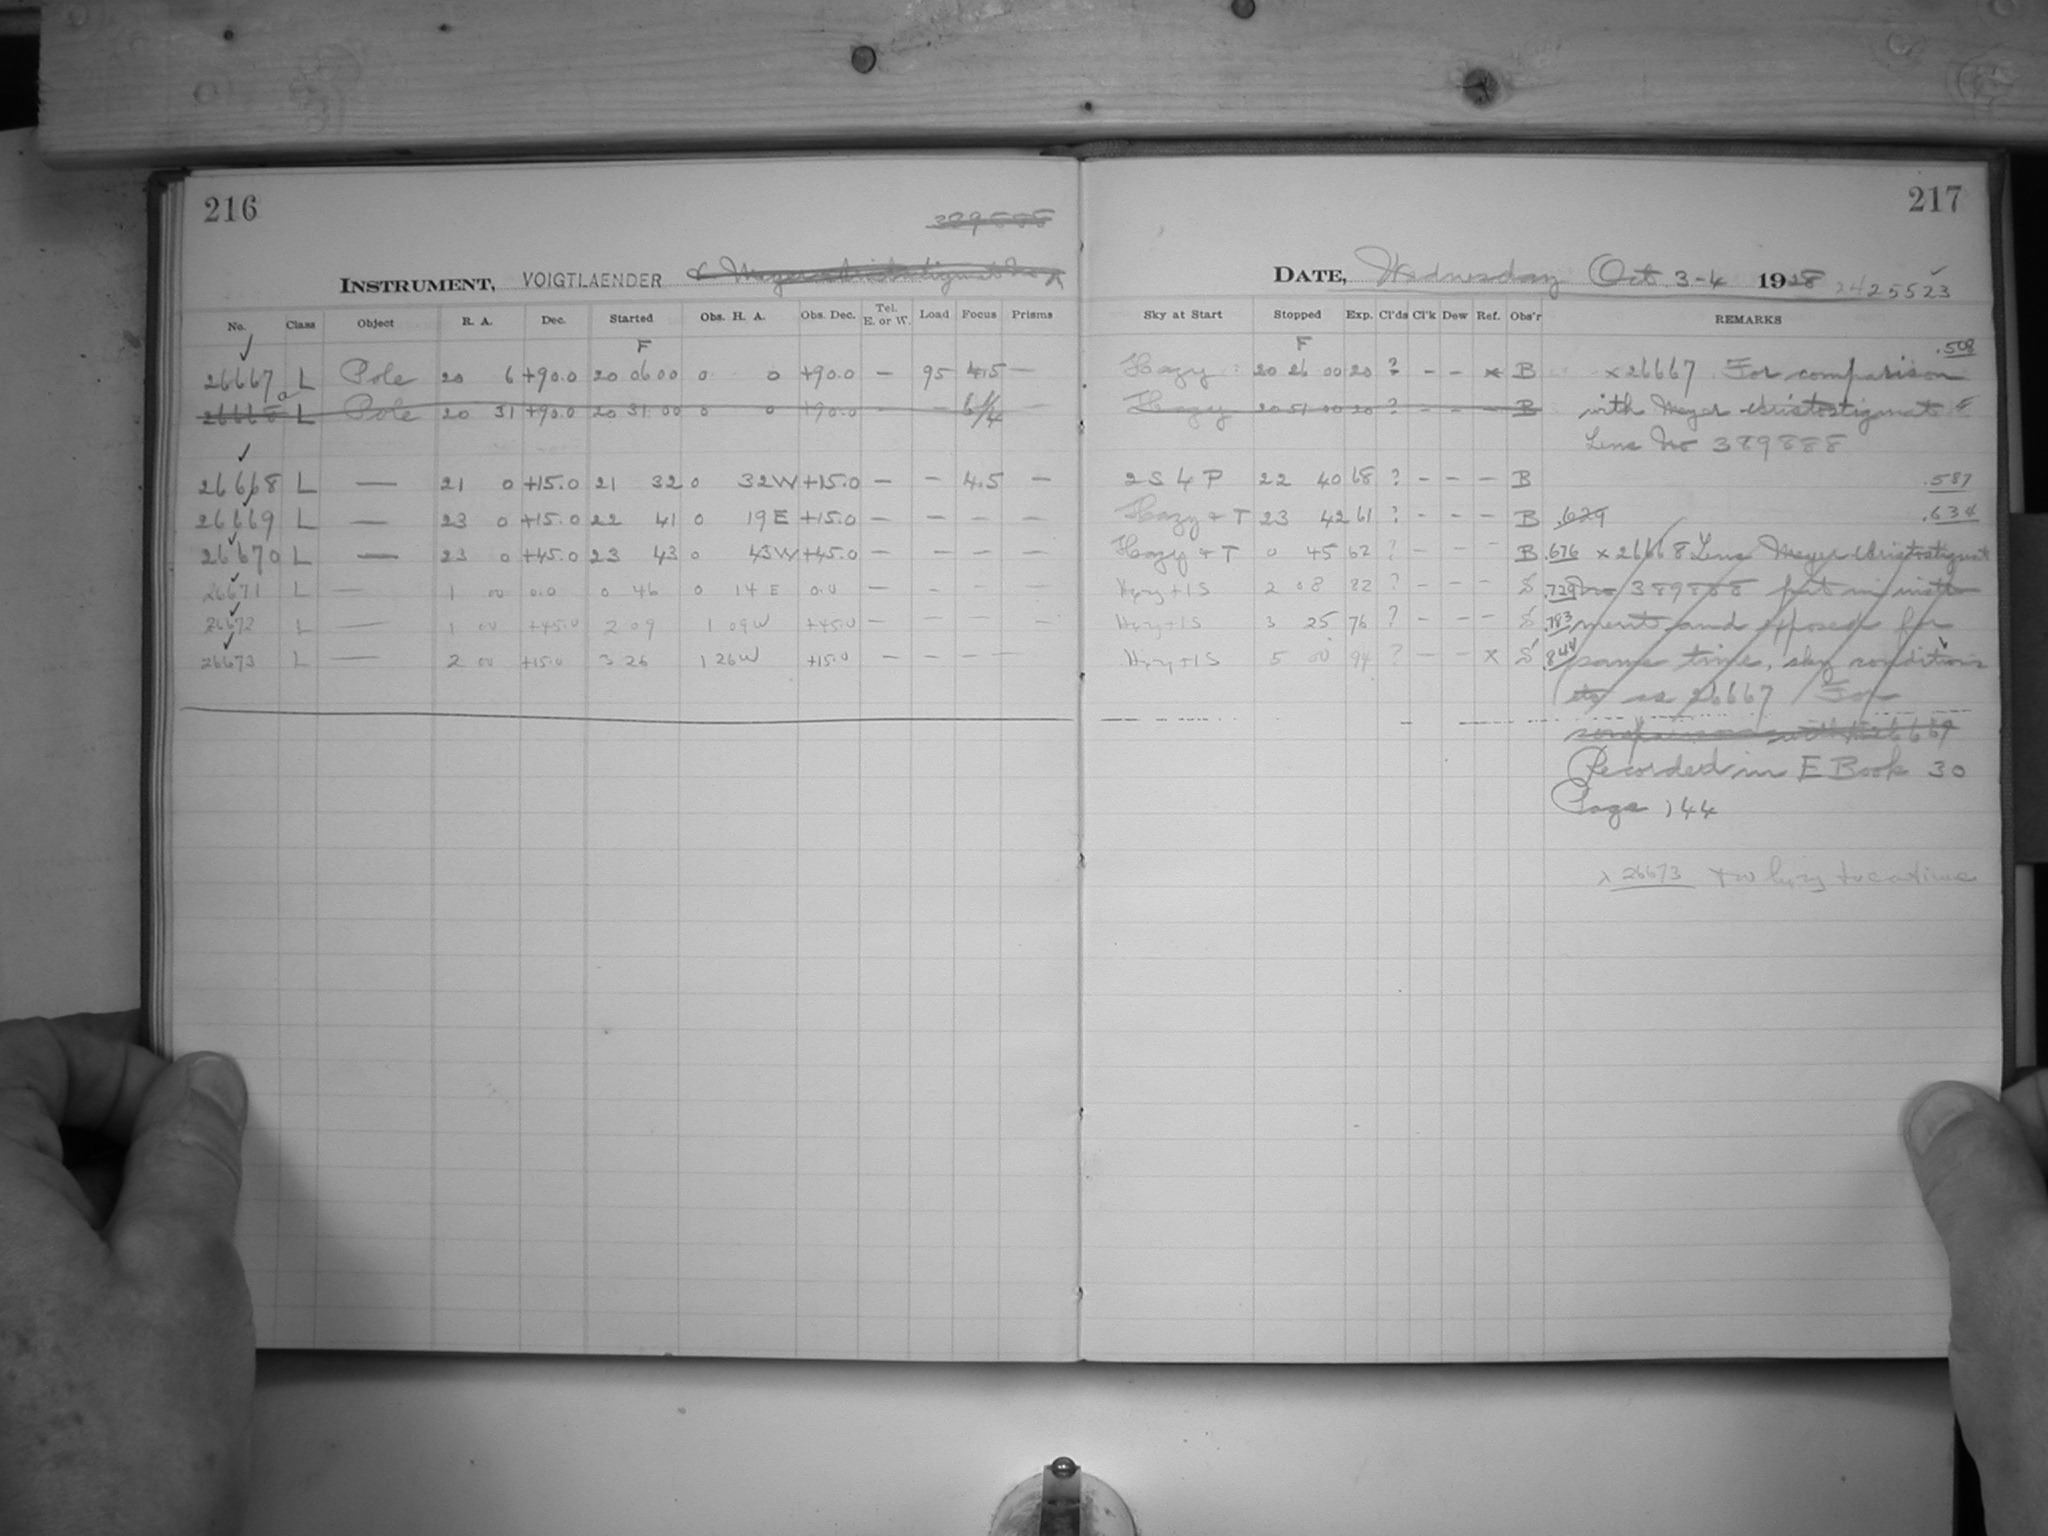 216
389888
INSTRUMENT, VOIGTLAENDER & Meyer Aristostigmat No
No. Class Object R. A. Dec. Started Obs. H. A. Obs. Dec. Tel. E. or W. Load Focus Prisms
F
26667 L Pole 20 6 +90.0 20 06 00 0 0 +90.0 — 95 4.5 —
26668a L Pole 20 31 +90.0 20 31 00 0 0 +90.0 — — 6 1/4 —
26668 L — 21 0 +15.0 21 32 0 32W +15.0 — — 4.5 —
26669 L — 23 0 +15.0 22 41 0 19 E +15.0 — — — —
26670 L — 23 0 +45.0 23 43 0 43W +45.0 — — — —
26671 L — 1 00 0.0 0 46 0 14 E 0.0 — - — —
26672 L — 1 00 +45.0 2 09 1 09W +45.0 — — — —
26673 L — 2 00 +15.0 3 26 1 26W +15.0 — — — —
217
DATE, Wednesday Oct 3-4 1928 2425523
Sky at Start Stopped Exp. Cl'ds Cl'k Dew Ref. Obs'r REMARKS
F .508
Hazy 20 26 00 20 ? - - x B x26667 For comparison
Hazy 20 51 00 20 ? - - - B with Meyer Aristostigmat
Lens No 389888
2 S 4 P 22 40 68 ? - - - B .587
Hazy + T 23 42 61 ? - - - B .629 .634
Hazy + T 0 45 62 ? - - - B .676 x 26668 Lens Meyer Aristostigmat
Hazy+1S 2 08 82 ? - - - S .729 No 389888 put in instru
Hazy+1S 3 25 76 ? - - - S .783 ment and exposed for
Hazy+1S 5 00 94 ? - - x S .844 same time, sky conditions
etc as 26667 For
comparison with 26667
Recorded in E Book 30
Page 144
x 26673